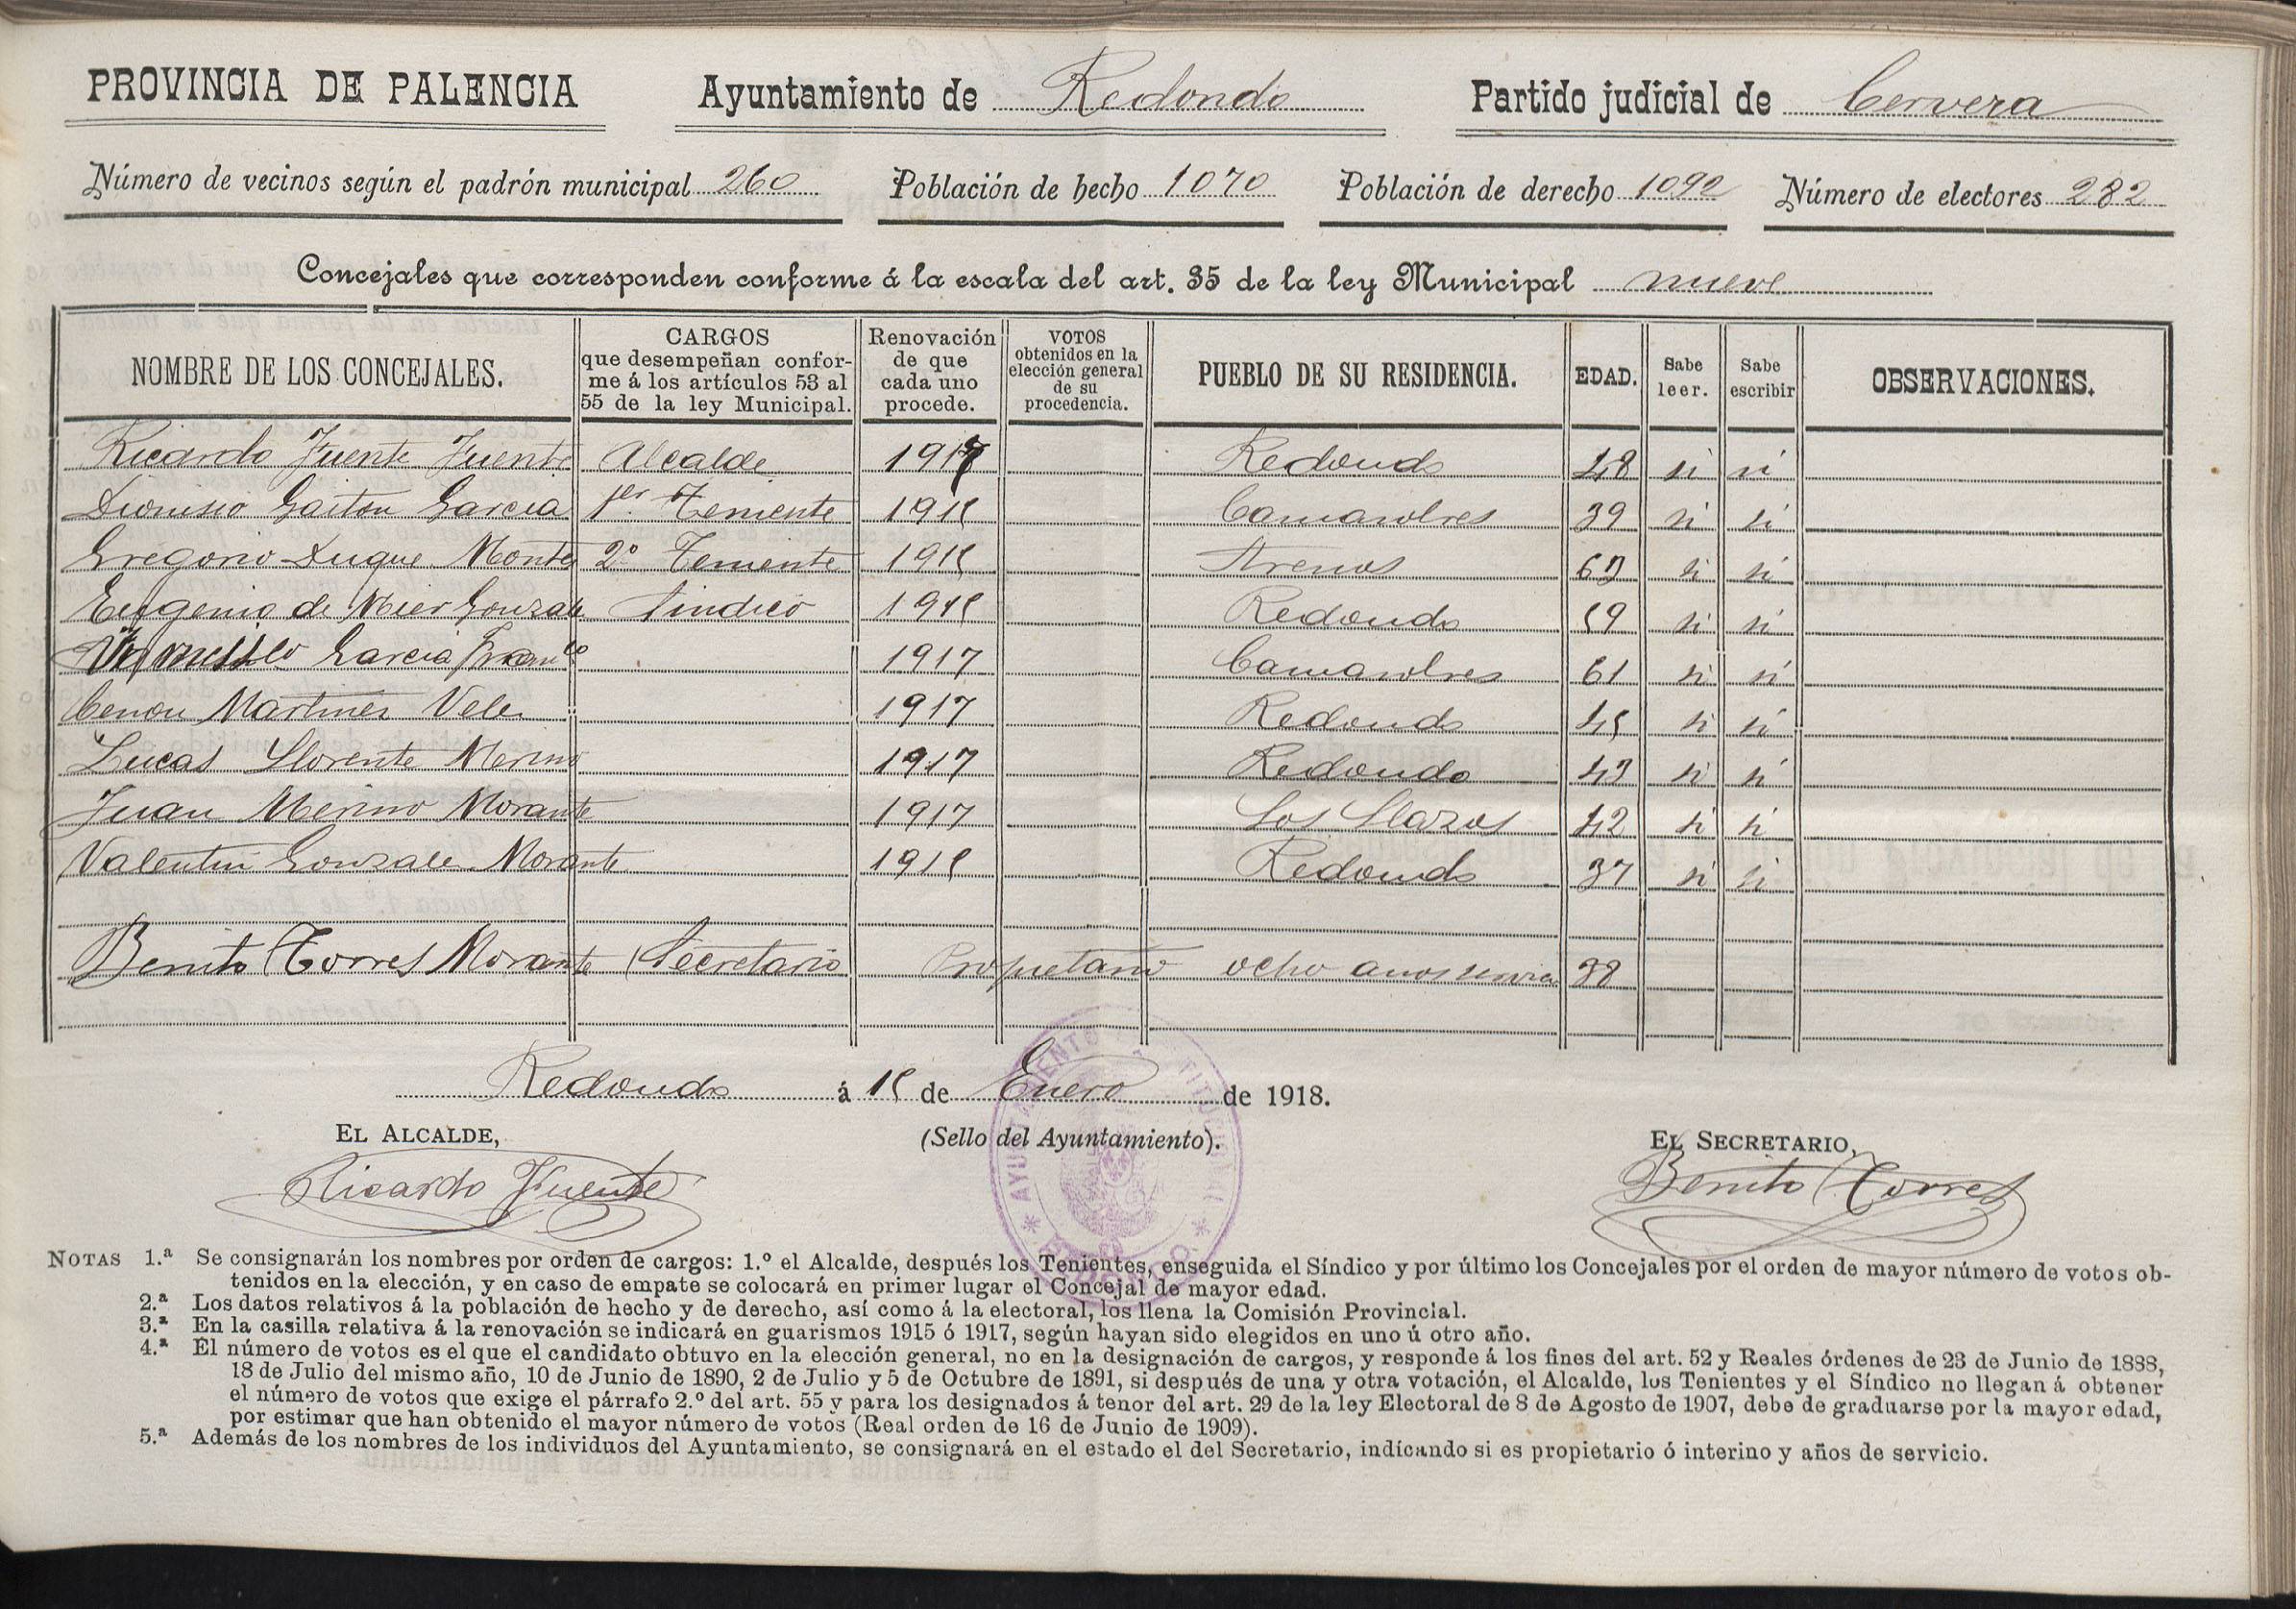 PROVINCIA DE PALENCIA Ayuntamiento de Redondo Partido judicial de Cervera
Número de vecinos según el padrón municipal 260 Población de hecho 1070 Población de derecho 1092 Número de electores 282
Concejales que corresponden conforme á la escala del art. 35 de la ley Municipal nueve
NOMBRE DE LOS CONCEJALES.
CARGOS
que desempeñan confor-
me á los artículos 53 al
55 de la ley Municipal.
Renovación
de que
cada uno
procede.
VOTOS
obtenidos en la
elección general
de su
procedencia.
PUEBLO DE SU RESIDENCIA.
EDAD.
Sabe
leer.
Sabe
escribir
OBSERVACIONES.
Ricardo Fuente Fuente Alcalde 1917 Redondo 48 si si
Dionisio Gaiton Garcia 1er. Teniente 1915 Camasobres 39 si si
Gregorio Duque Montes 2º Teniente 1915 Arenos 63 si si
Eugenio de Mier Gonzale Sindico 1915 Redondo 59 si si
Garcia 1917 Camasobres 61 si si
Cenon Martinez Velez 1917 Redondo 45 si si
Lucas Llorente Merino 1917 Redondo 43 si si
Juan Merino Morante 1917 Los Llazos 42 si si
Valentin Gonzalez Morante 1915 Redondo 37 si si
Benito Torres Morante Secretario Propietario ocho años 38
Redondo á 15 de Enero de 1918.
EL ALCALDE, (Sello del Ayuntamiento). EL SECRETARIO,
Ricardo Fuente Benito Torres
AYUNTAMIENTO
NOTAS 1.ª Se consignarán los nombres por orden de cargos: 1.º el Alcalde, después los Tenientes, enseguida el Síndico y por último los Concejales por el orden de mayor número de votos ob-
tenidos en la elección, y en caso de empate se colocará en primer lugar el Concejal de mayor edad.
2.ª Los datos relativos á la población de hecho y de derecho, así como á la electoral, los llena la Comisión Provincial.
3.ª En la casilla relativa á la renovación se indicará en guarismos 1915 ó 1917, según hayan sido elegidos en uno ú otro año.
4.ª El número de votos es el que el candidato obtuvo en la elección general, no en la designación de cargos, y responde á los fines del art. 52 y Reales órdenes de 23 de Junio de 1888,
18 de Julio del mismo año, 10 de Junio de 1890, 2 de Julio y 5 de Octubre de 1891, si después de una y otra votación, el Alcalde, los Tenientes y el Síndico no llegan á obtener
el número de votos que exige el párrafo 2.º del art. 55 y para los designados á tenor del art. 29 de la ley Electoral de 8 de Agosto de 1907, debe de graduarse por la mayor edad,
por estimar que han obtenido el mayor número de votos (Real orden de 16 de Junio de 1909).
5.ª Además de los nombres de los individuos del Ayuntamiento, se consignará en el estado el del Secretario, indicando si es propietario ó interino y años de servicio.